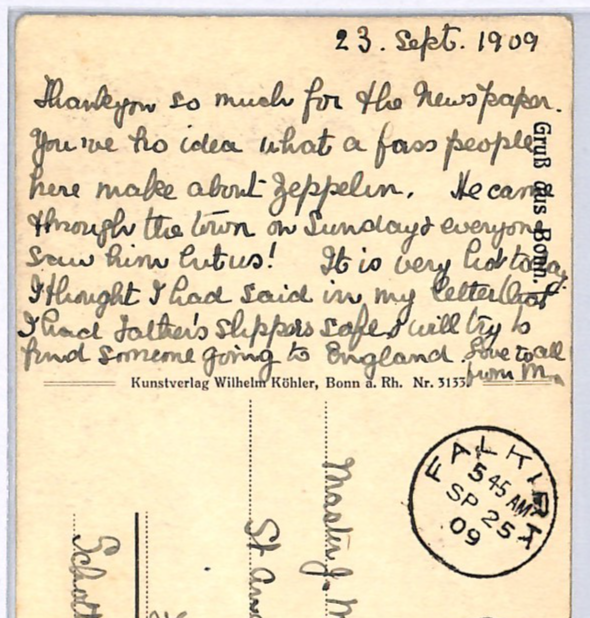 23. Sept. 1909
Thankyou so much for the Newspaper.
You've no idea what a fuss people
here make about Zeppelin. He came
through the town on Sunday & everyone
saw him but us! It is very hot today,
I thought I had said in my letter that
I had Father's slippers safe, I will try to
find someone going to England. Love to all
from M.
Gruß aus Bonn.
Kunstverlag Wilhelm Köhler, Bonn a. Rh. Nr. 3133.
FALKIRK
5 45 AM
SP 25
09
Master J. M
St